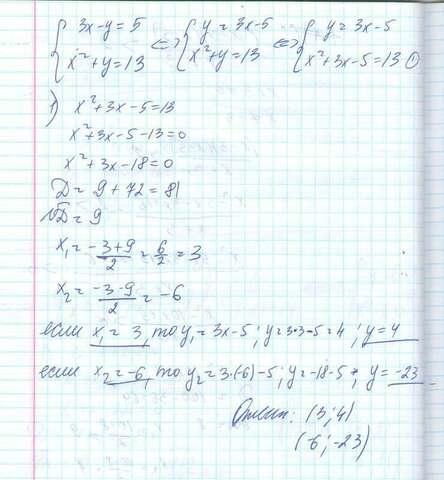 { 3x-y=5 <=> { y=3x-5 <=> { y=3x-5
{ x²+y=13 { x²+y=13 { x²+3x-5=13 ①
1) x²+3x-5=13
x²+3x-5-13=0
x²+3x-18=0
D=9+72=81
√D=9
x₁=(-3+9)/2=6/2=3
x₂=(-3-9)/2=-6
если x₁=3, то y₁=3x-5; y=3·3-5=4; y=4
если x₂=-6, то y₂=3·(-6)-5; y=-18-5; y=-23
Ответ: (3;4)
(-6;-23)